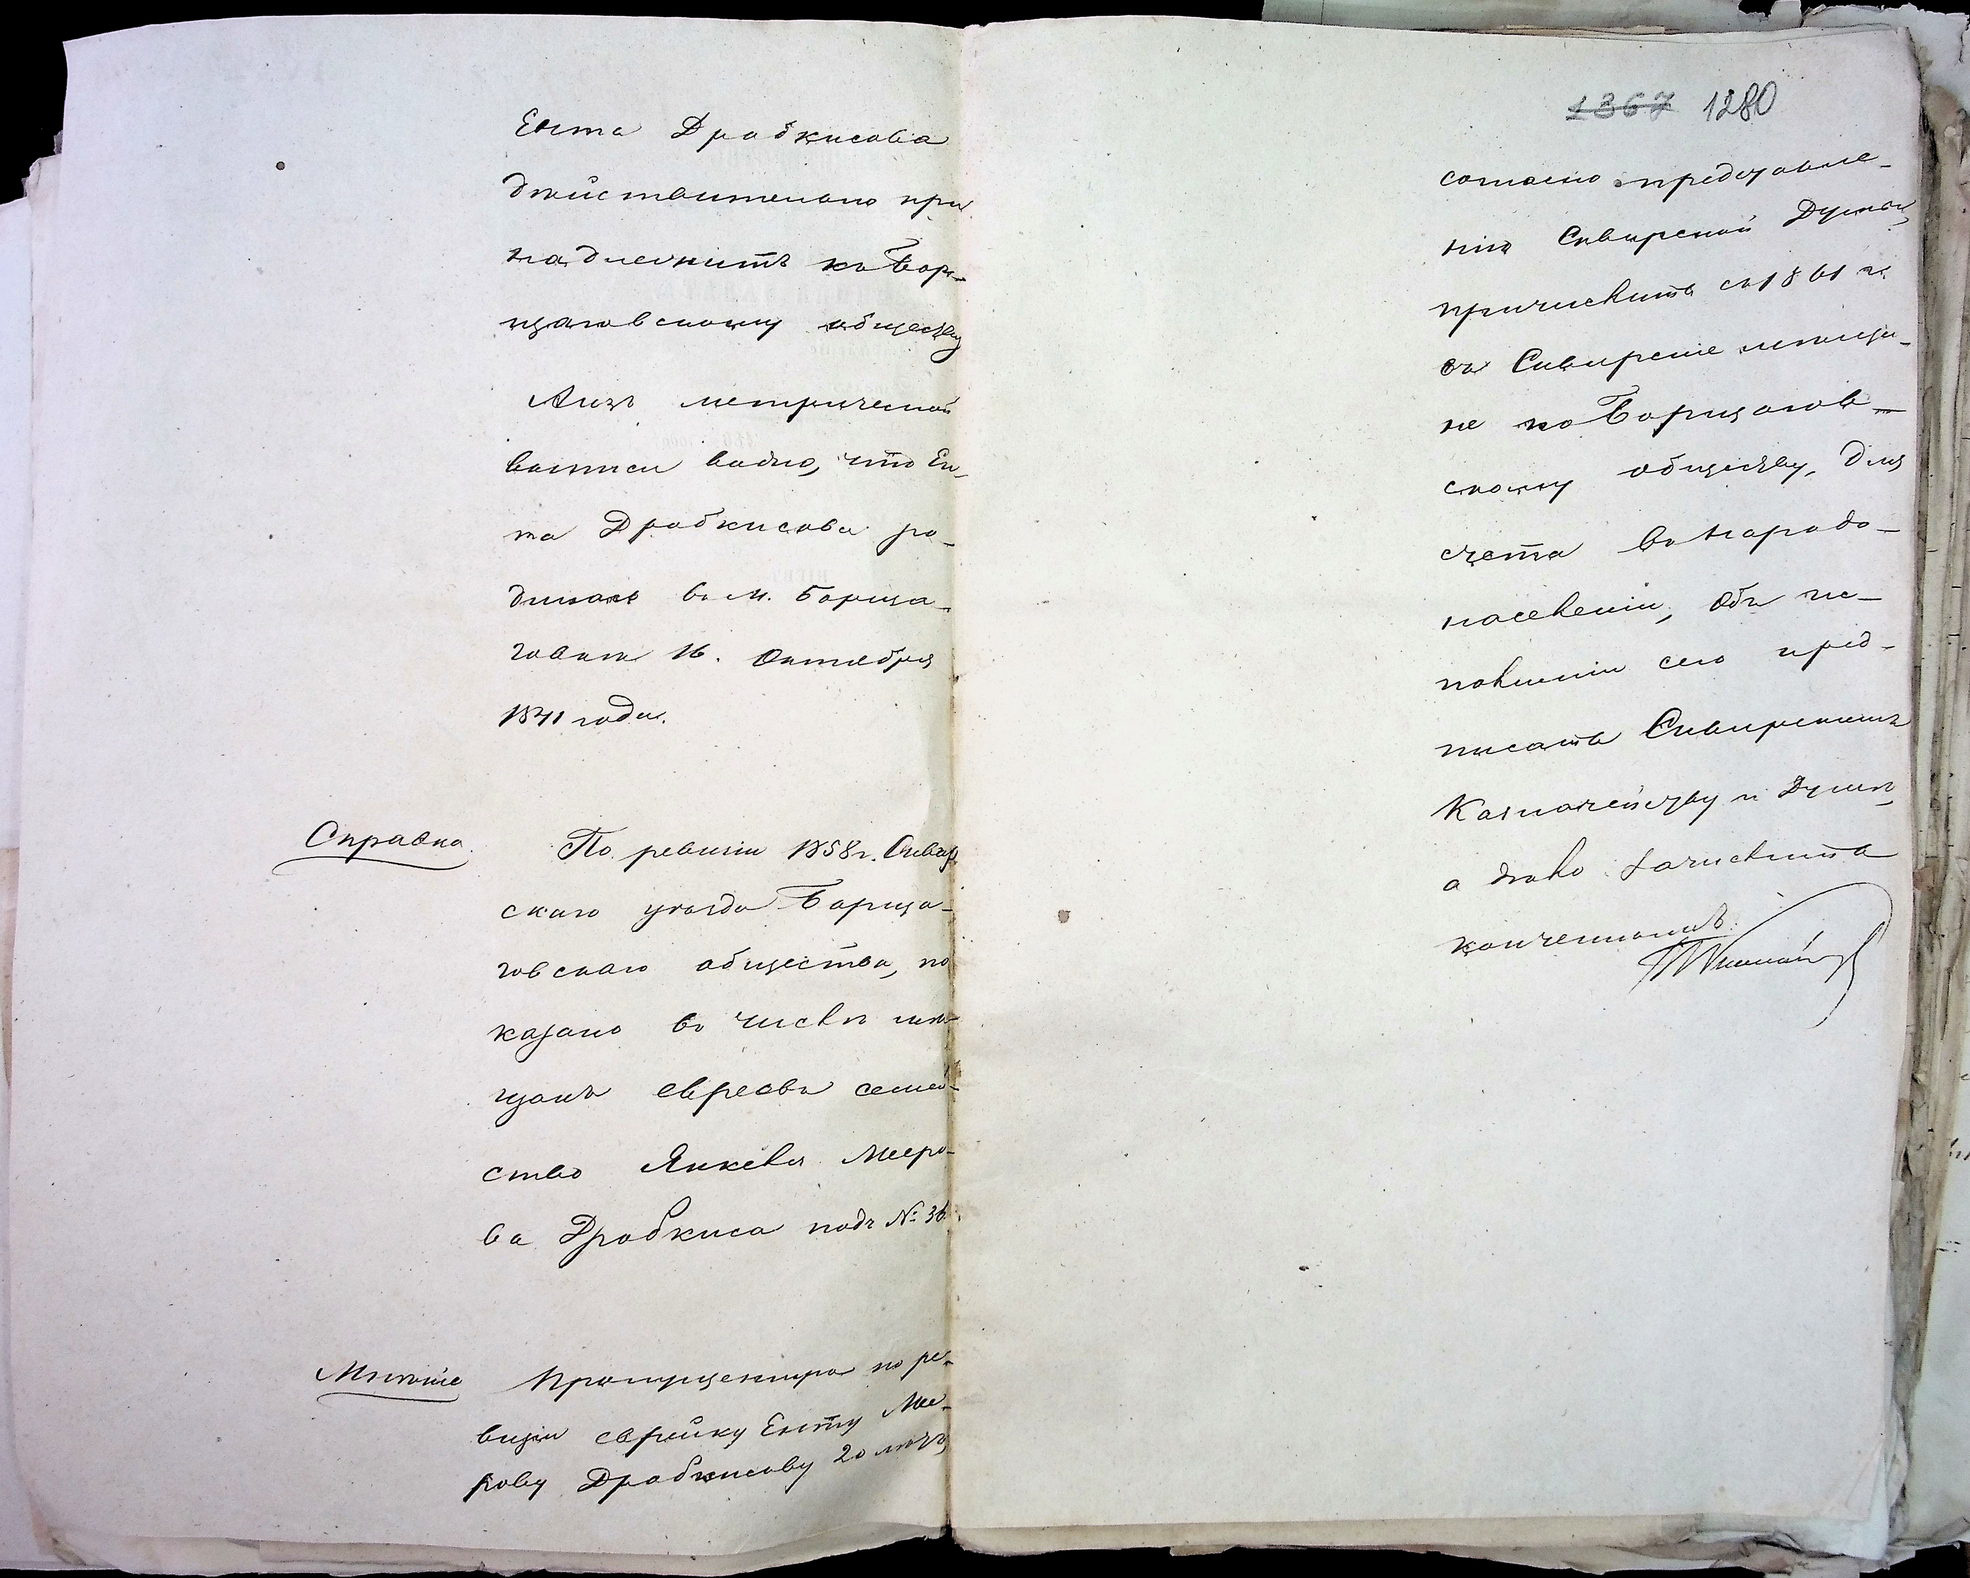 Ента Дробкисова
дѣйствительно при
надлежитъ къ Бор-
щаговскому обществу
Аизъ метрической
выписи видно, что Ен-
та Дробкисова ро-
дилась въ м. Борща-
говкѣ 16. Октября
1841 года.
Справка.
По ревизіи 1858 г. Сквир
скаго уѣзда Борща-
говскаго общества, по
казано въ числѣ мѣ-
щанъ евреевъ семей-
ство Янкеля Мееро-
ва Дробкиса подъ № 36.
Мнѣніе
Пропущенную по ре-
визіи еврейку Енту Мее-
рову Дробкисову 20 лѣтъ
1367 1280
согласно представле-
нію Сквирской Думы,
причислить съ 1861 г.
въ Сквирскіе мѣщан-
не по Борщагов-
скому обществу, для
счета въ народо-
населеніи, объ ис-
полненіи сего пред-
писать Сквирскимъ
Казначейству и Думѣ,
а дѣло зачислить
конченнымъ.